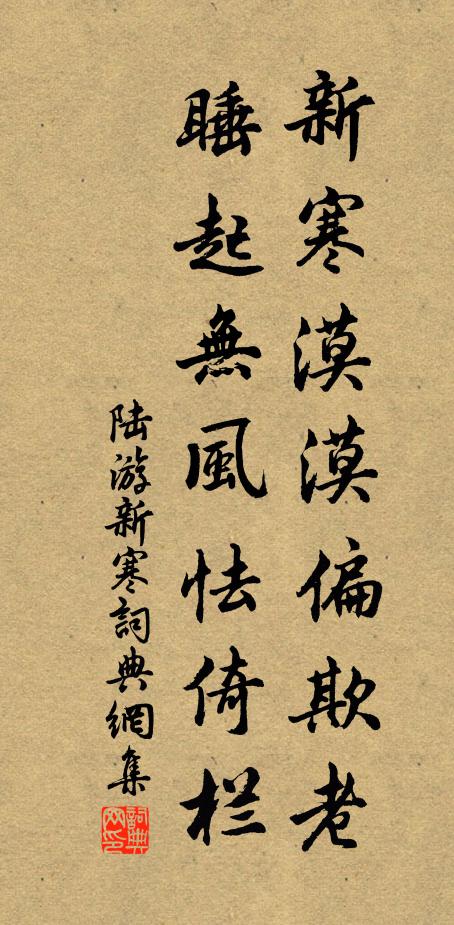 新寒漠漠偏欺老
睡起無風怯倚栏
陆游新寒詞典網集
詞典网印